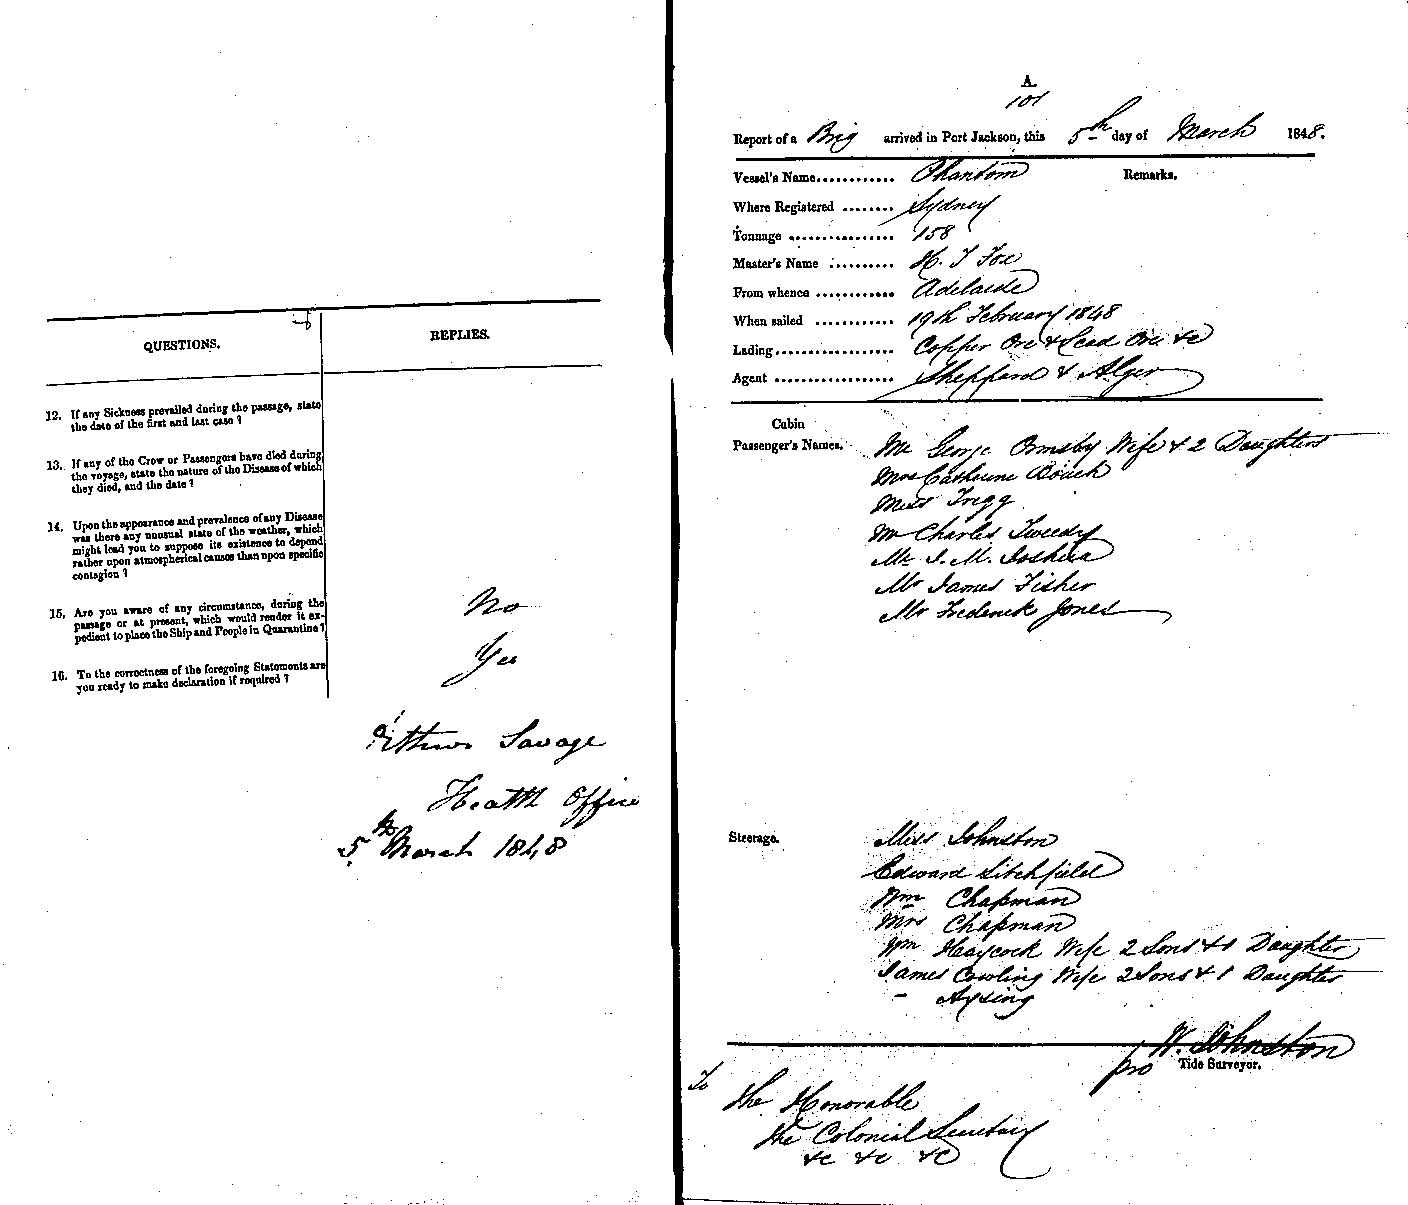 QUESTIONS.
REPLIES.
12. If any Sickness prevailed during the passage, state
the date of the first and last case ?
13. If any of the Crew or Passengers have died during
the voyage, state the nature of the Disease of which
they died, and the date ?
14. Upon the appearance and prevalence of any Disease
was there any unusual state of the weather, which
might lead you to suppose its existence to depend
rather upon atmospherical causes than upon specific
contagion ?
15. Are you aware of any circumstance, during the
passage or at present, which would render it ex-
pedient to place the Ship and People in Quarantine ?
No
16. To the correctness of the foregoing Statements are
you ready to make declaration if required ?
Yes
Arthur Savage
Health Office
5th March 1848
A.
101
Report of a Brig arrived in Port Jackson, this 5th day of March 1848.
Vessel's Name............ Phantom
Remarks.
Where Registered ........ Sydney
Tonnage ................ 158
Master's Name .......... H. T Fox
From whence ............ Adelaide
When sailed ............ 19th February 1848
Lading.................. Copper Ore & Lead Ore &c
Agent .................. Sheppard & Alger
Cabin
Passenger's Names. Mr George Ormsby Wife & 2 Daughters
Mrs Catherine
Miss Trigg
Mr Charles Tweedy
Mr J. M. Joshua
Mr James Fisher
Mr Frederick Jones
Steerage. Miss Johnston
Edward Litchfield
Wm Chapman
Mrs Chapman
Wm Haycock Wife 2 Sons & 1 Daughter
James Cowling Wife 2 Sons & 1 Daughter
- Aysing
W. Johnston
pro Tide Surveyor.
To
The Honorable
The Colonial Secretary
&c &c &c